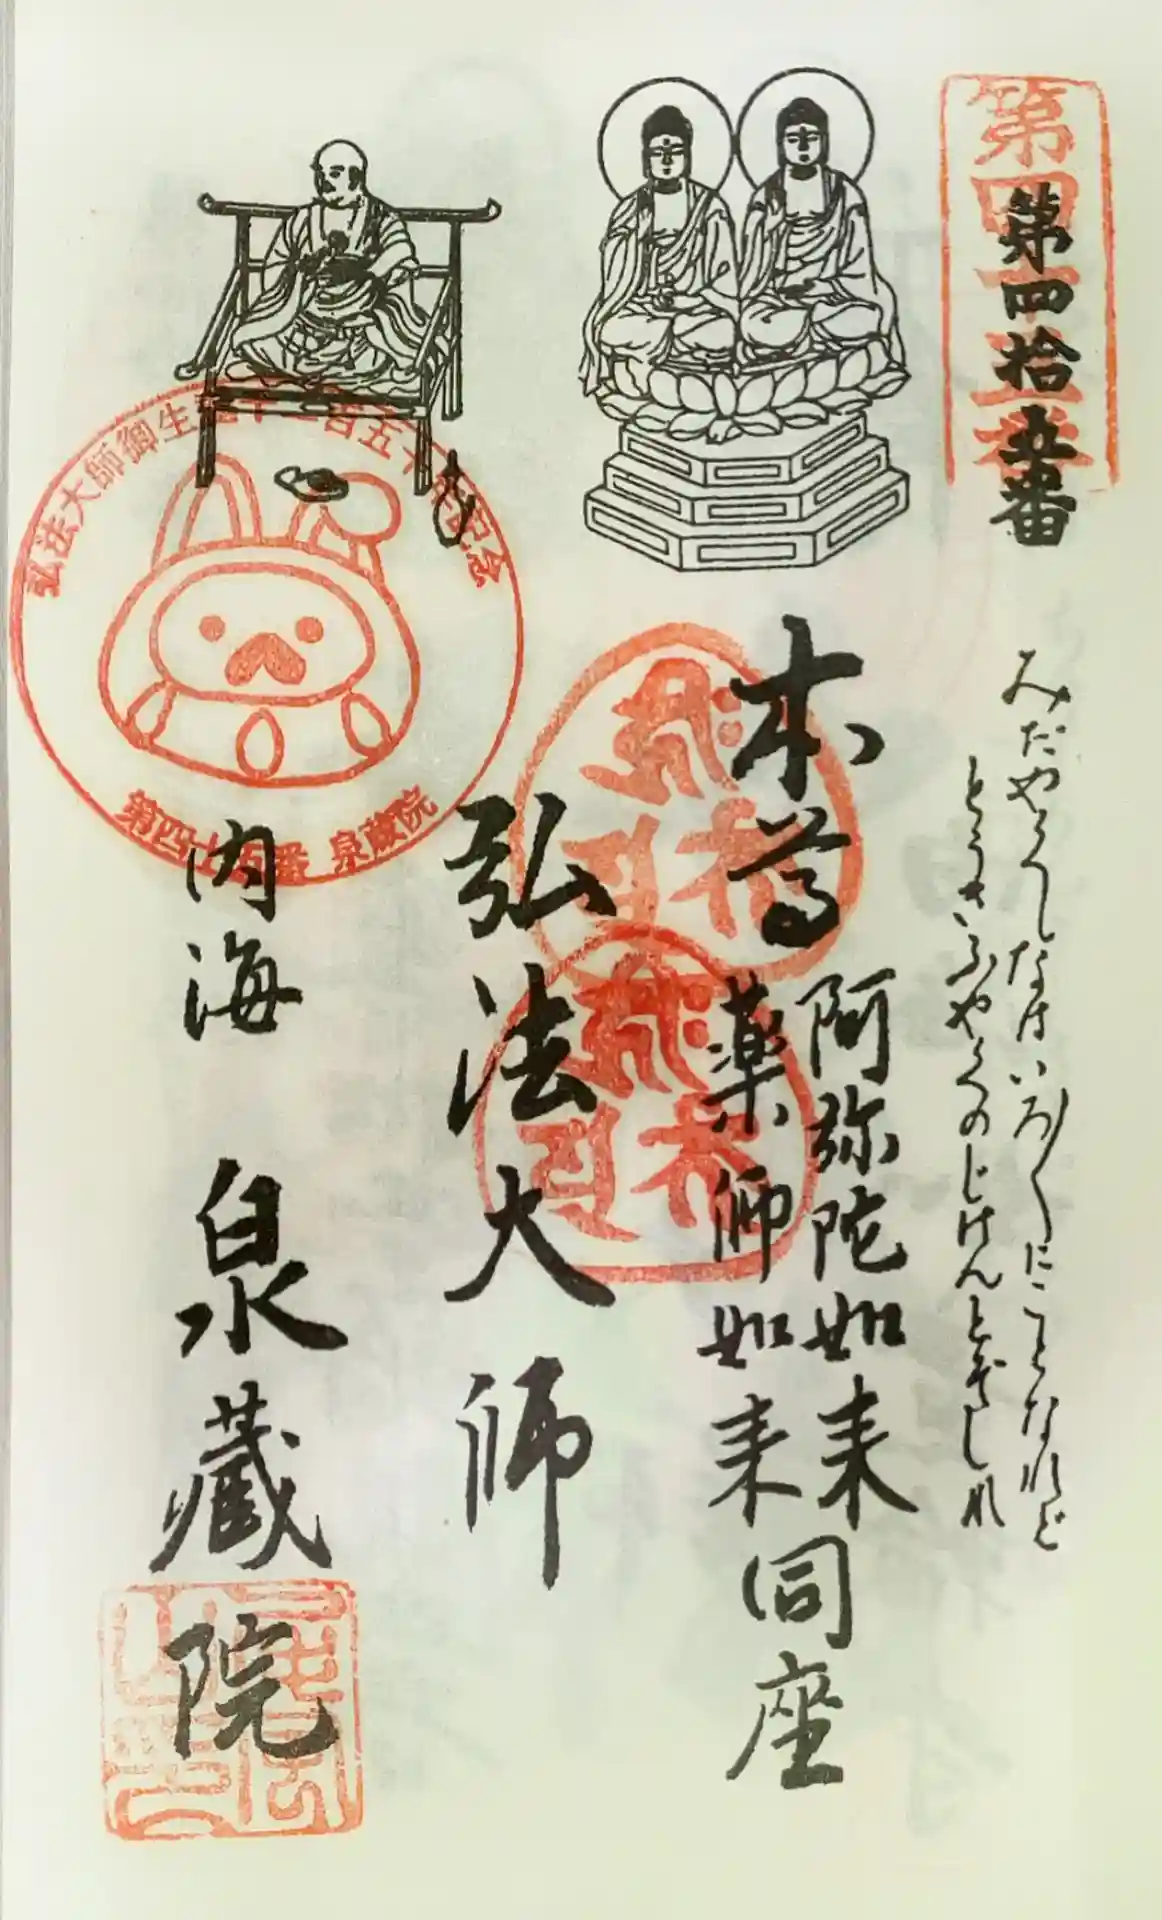 第四十五番
第四拾五番
みだやくしなはいろ〱にことなれど
とうざいふやくのじげんとぞしれ
本尊
阿弥陀如来
薬師如来
同座
弘法大師
弘法大師御生誕千二百五十年記念
第四十五番 泉蔵院
内海 泉蔵院